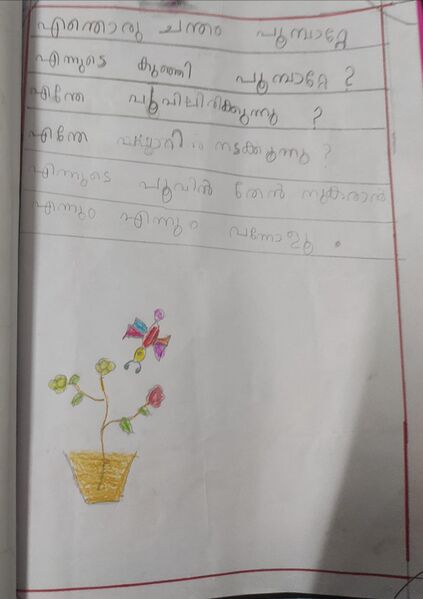 എന്തൊരു ചന്തം പൂമ്പാറ്റേ
എന്നുടെ കുഞ്ഞി പൂമ്പാറ്റേ ?
എന്തേ പൂവിലിരിക്കുന്നു ?
എന്തേ നടക്കുന്നു ?
എന്നുടെ പൂവിൻ തേൻ നുകരാൻ
എന്നും എന്നും വന്നോളൂ .